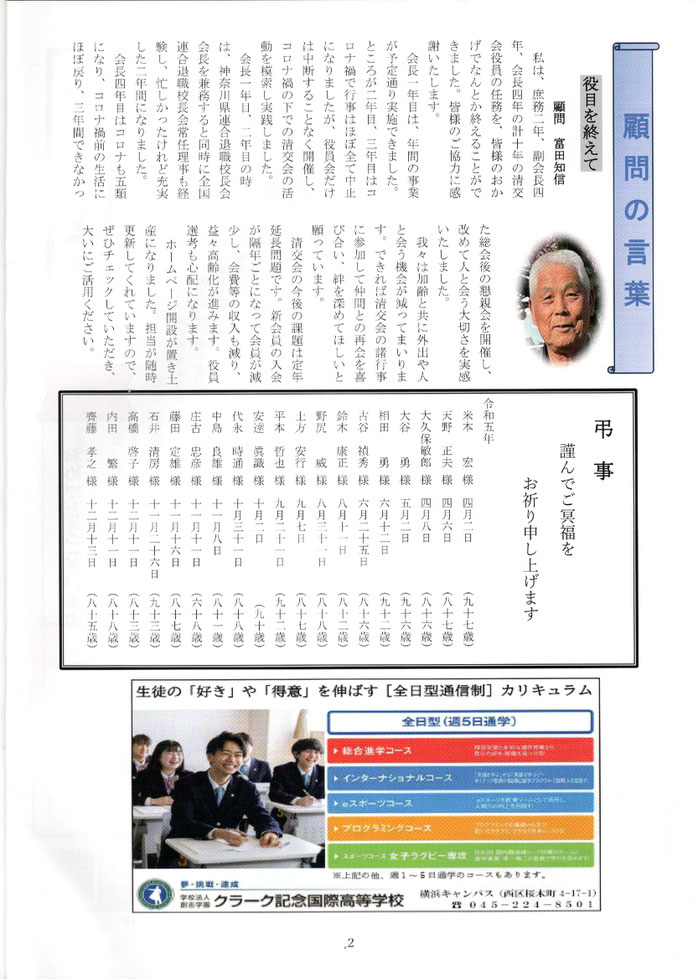 顧問の言葉
役目を終えて
顧問　富田知信
私は、庶務二年、副会長四
年、会長四年の計十年の清交
会役員の任務を、皆様のおか
げでなんとか終えることがで
きました。皆様のご協力に感
謝いたします。
会長一年目は、年間の事業
が予定通り実施できました。
ところが二年目、三年目はコ
ロナ禍で行事はほぼ全て中止
になりましたが、役員会だけ
は中断することなく開催し、
コロナ禍の下での清交会の活
動を模索し実践しました。
会長一年目、二年目の時
は、神奈川県連合退職校長会
会長を兼務すると同時に全国
連合退職校長会常任理事も経
験し、忙しかったけれど充実
した二年間になりました。
会長四年目はコロナも五類
になり、コロナ禍前の生活に
ほぼ戻り、三年間できなかっ
た総会後の懇親会を開催し、
改めて人と会う大切さを実感
いたしました。
我々は加齢と共に外出や人
と会う機会が減ってまいりま
す。できれば清交会の諸行事
に参加して仲間との再会を喜
び合い、絆を深めてほしいと
願っています。
清交会の今後の課題は定年
延長問題です。新会員の入会
が隔年ごとになって会員が減
少し、会費等の収入も減り、
益々高齢化が進みます。役員
選考も心配になります。
ホームページ開設が置き土
産になりました。担当が随時
更新してくれていますので、
ぜひチェックしていただき、
大いにご活用ください。
弔　事
謹んでご冥福を
お祈り申し上げます
令和五年
米本　宏　様　四月二日　（九十七歳）
天野　正夫　様　四月六日　（八十七歳）
大久保敏郎　様　四月八日　（八十六歳）
大谷　勇　様　五月二日　（九十六歳）
相田　勇　様　六月十二日　（九十二歳）
古谷　禎秀　様　六月二十五日　（八十六歳）
鈴木　康正　様　八月十一日　（八十二歳）
野尻　威　様　八月三十一日　（八十八歳）
上方　安行　様　九月七日　（八十七歳）
平本　哲也　様　九月二十一日　（九十二歳）
安達　眞識　様　十月二日　（九十歳）
代永　時通　様　十月三十一日　（八十八歳）
中島　良雄　様　十一月八日　（八十一歳）
庄古　忠彦　様　十一月十一日　（六十八歳）
藤田　定雄　様　十一月十六日　（八十七歳）
石井　清房　様　十一月二十六日　（九十三歳）
高橋　啓子　様　十二月十一日　（八十三歳）
内田　繁　様　十二月十一日　（八十八歳）
齊藤　孝之　様　十二月十三日　（八十五歳）
生徒の「好き」や「得意」を伸ばす［全日型通信制］カリキュラム
全日型（週5日通学）
総合進学コース
インターナショナルコース
eスポーツコース
プログラミングコース
スポーツコース 女子ラグビー専攻
※上記の他、週1～5日通学のコースもあります。
夢・挑戦・達成
学校法人 創志学園 クラーク記念国際高等学校
横浜キャンパス（西区桜木町4-17-1）
☎045-224-8501
2